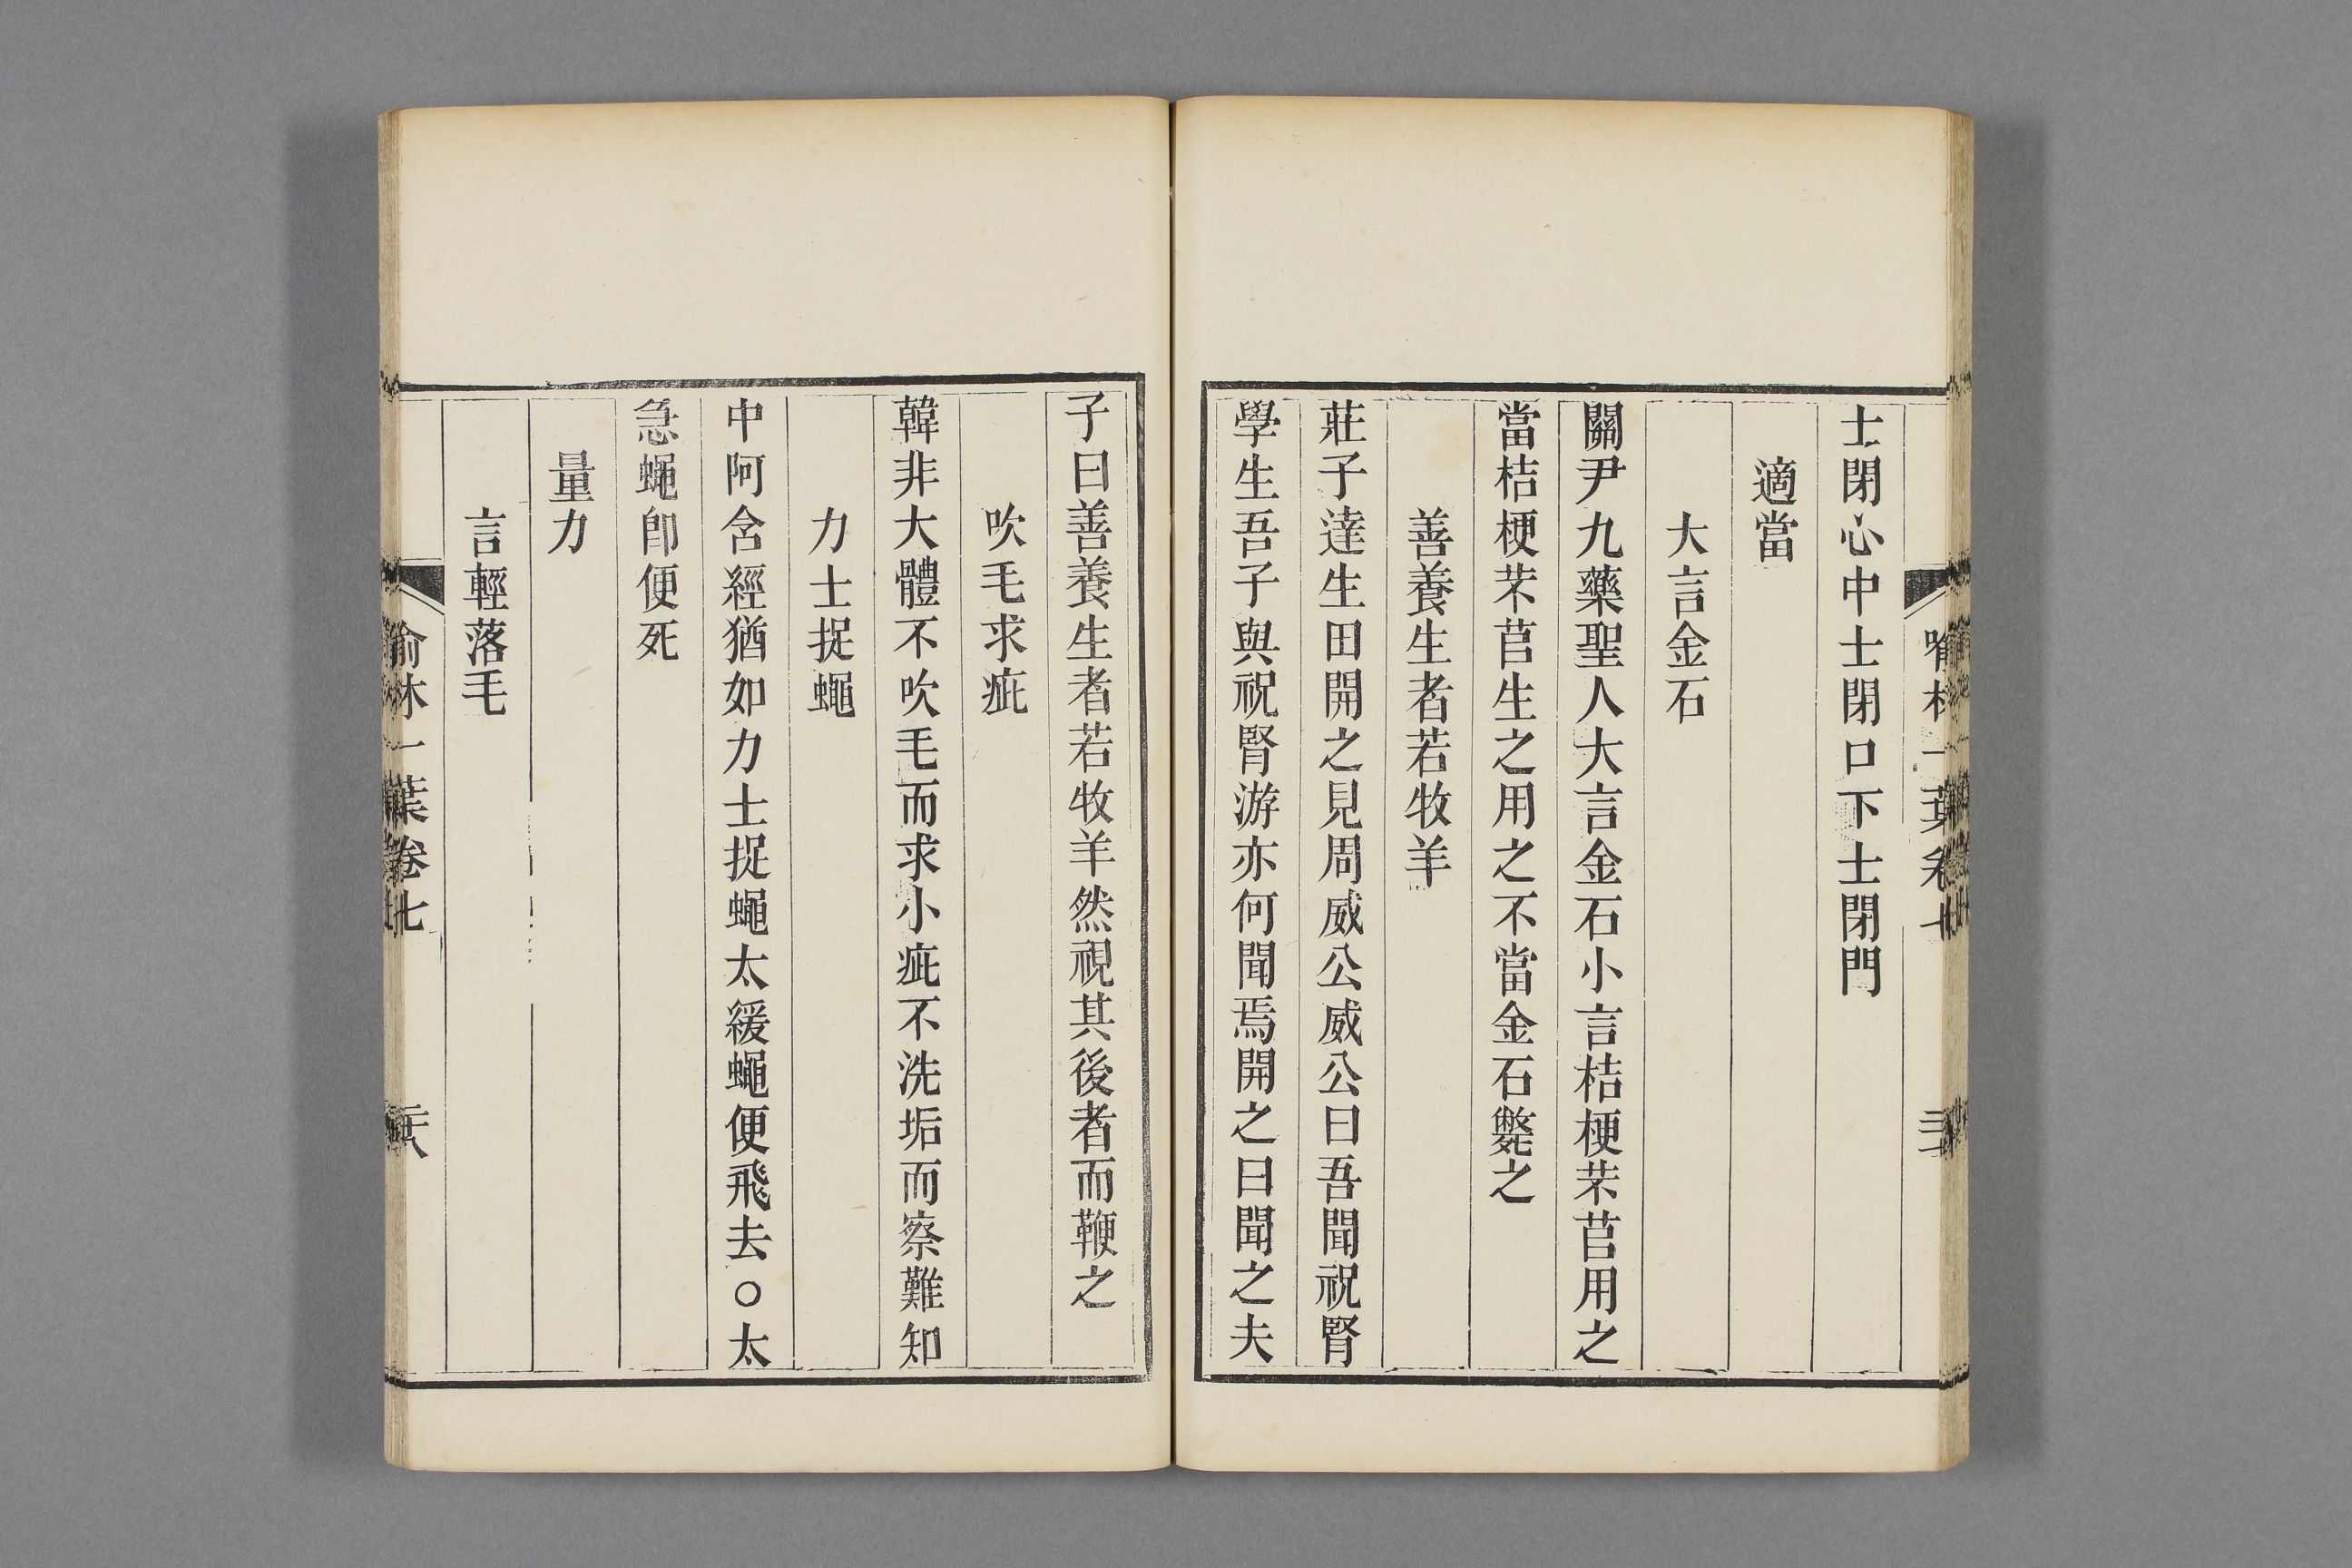 士閉心中士閉口下士閉門
適當
大言金石
關尹九藥聖人大言金石小言桔梗芣苢用之
當桔梗芣苢生之用之不當金石斃之
善養生者若牧羊
莊子達生田開之見周威公威公曰吾聞祝腎
學生吾子與祝腎游亦何聞焉開之曰聞之夫
子曰善養生者若牧羊然視其後者而鞭之
吹毛求疵
韓非大體不吹毛而求小疵不洗垢而察難知
力士捉蠅
中阿含經猶如力士捉蠅太緩蠅便飛去○太
急蠅卽便死
量力
言輕落毛
喻林一葉卷七